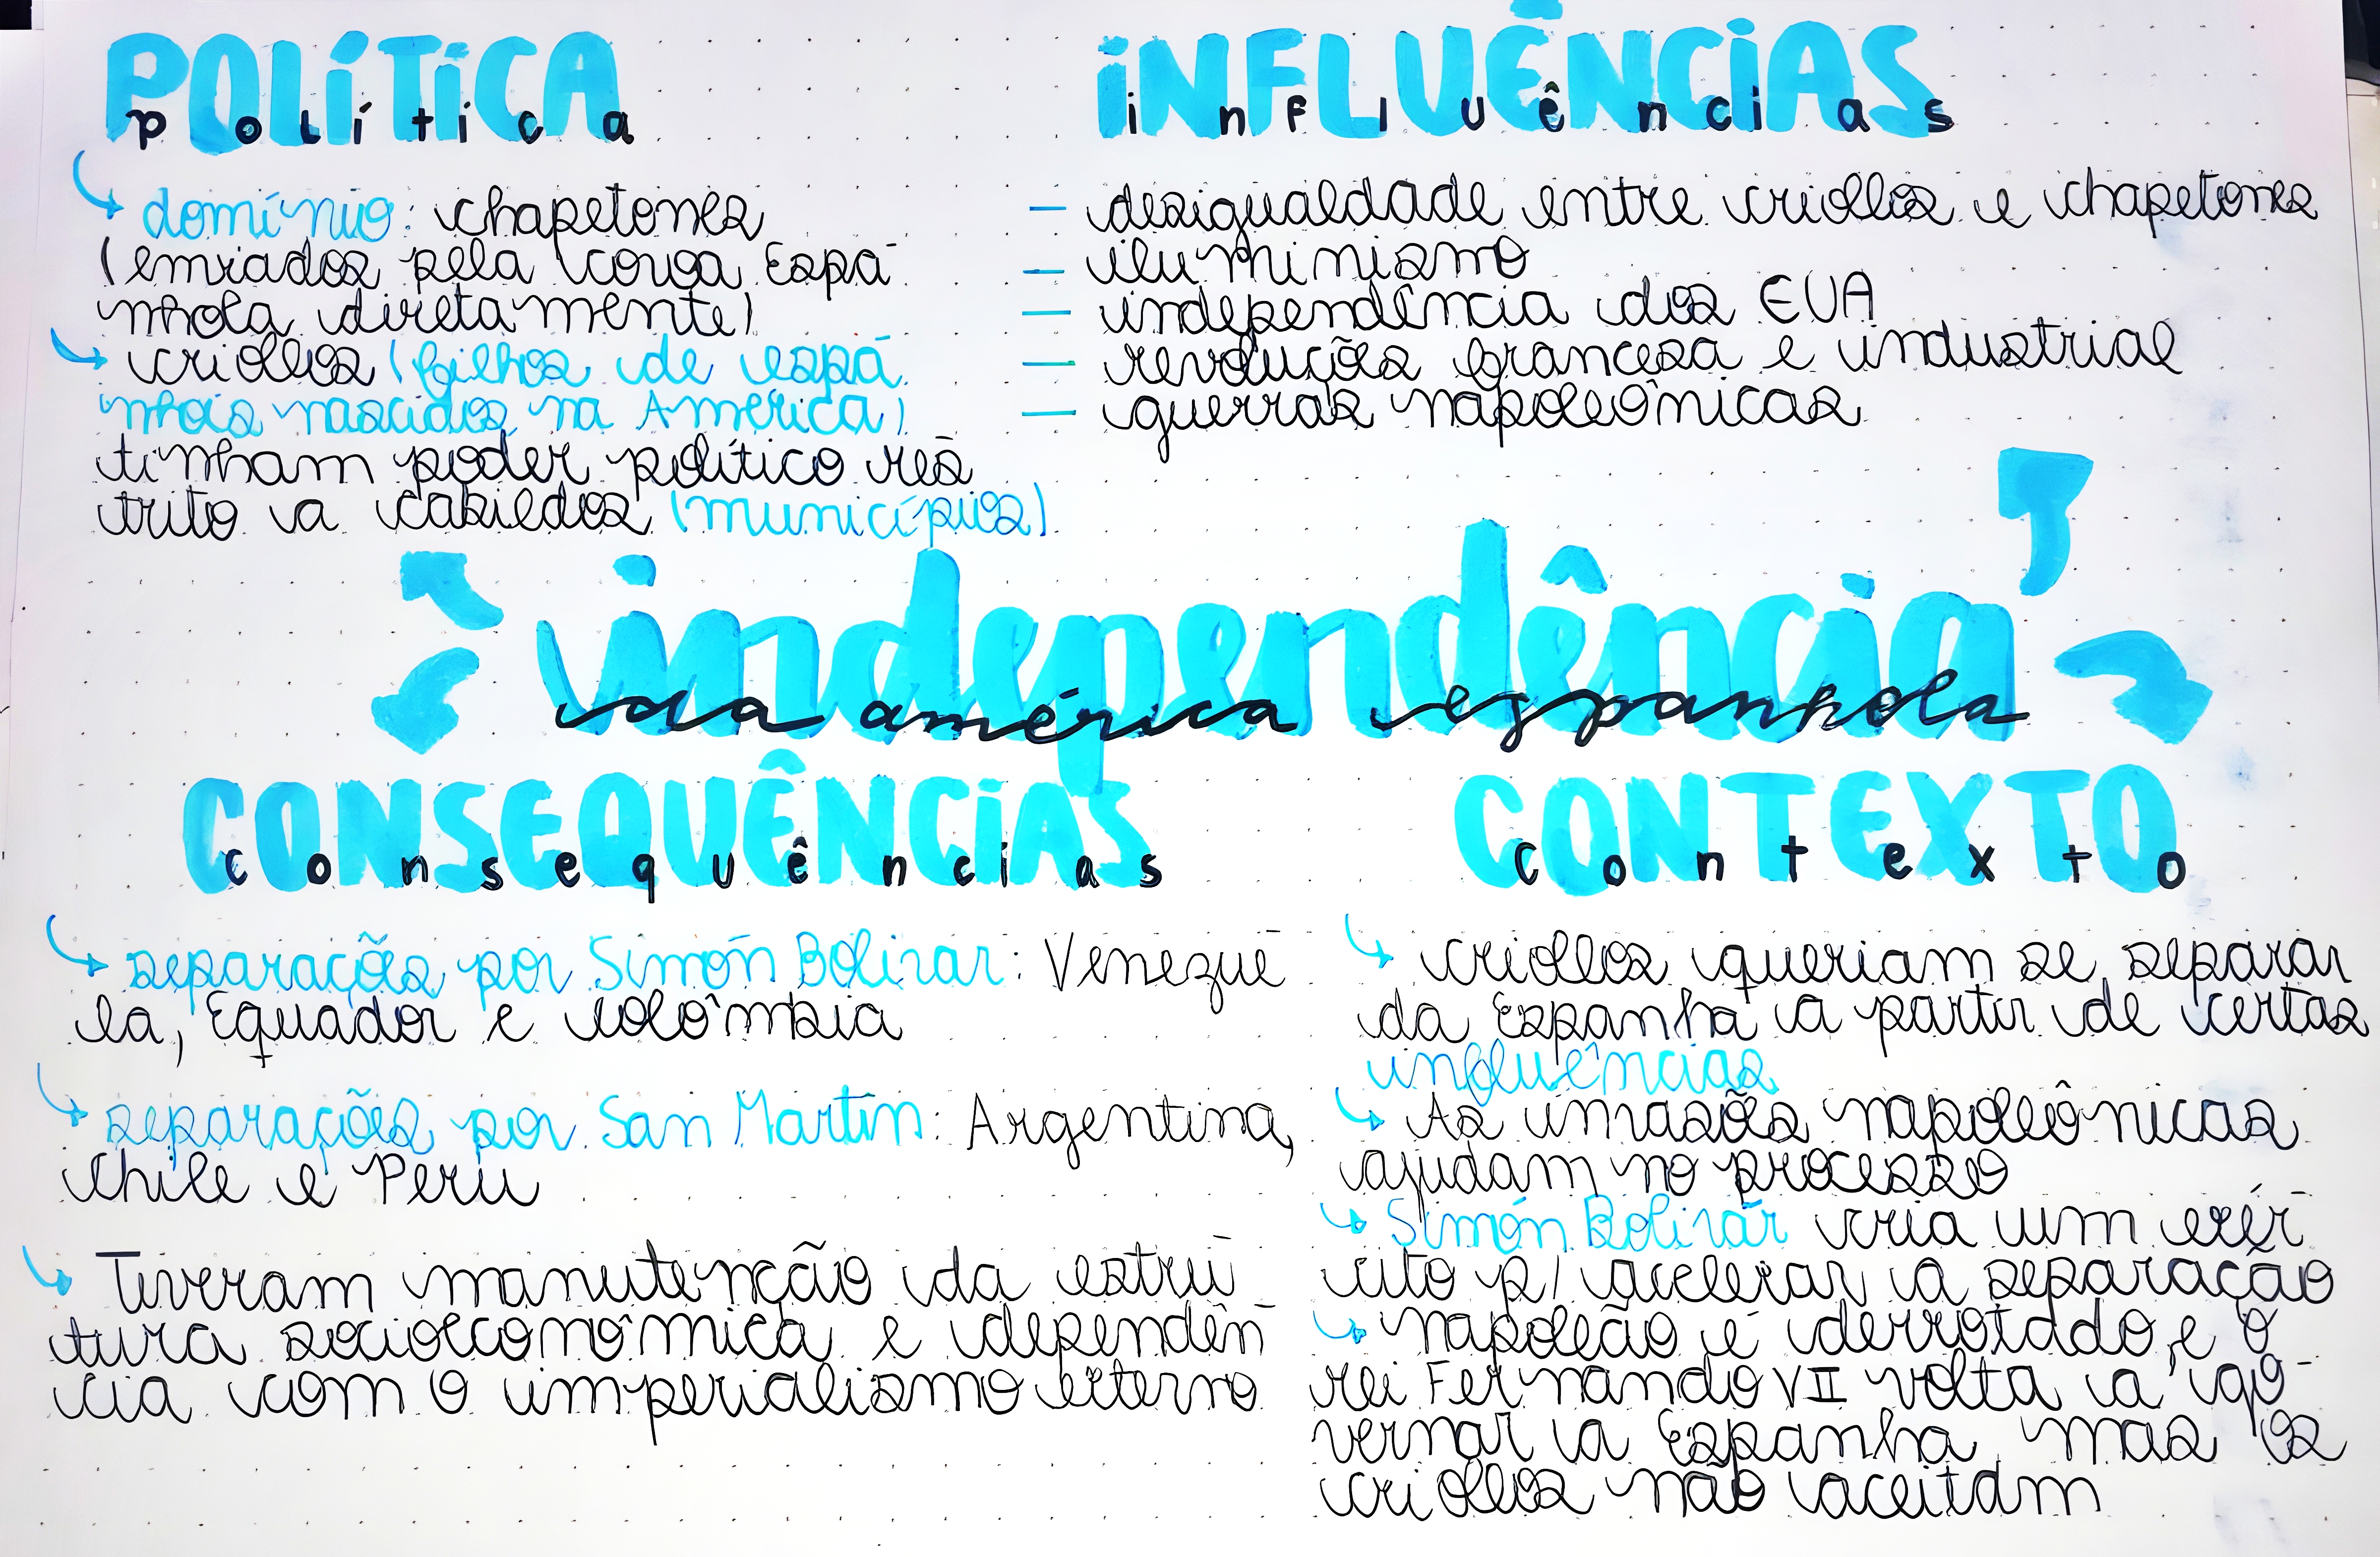 POLÍTICA
política
domínio: chapetones
(enviados pela coroa Espa-
nhola diretamente)
criollos (filhos de espa-
nhóis nascidos na América)
tinham poder político res-
trito a cabildos (municípios)
INFLUÊNCIAS
influências
- desigualdade entre criollos e chapetones
- iluminismo
- independência dos EUA
- revoluções francesa e industrial
- guerras napoleônicas
independência
da américa espanhola
CONSEQUÊNCIAS
consequências
separações por Simón Bolivar: Venezue-
la, Equador e colômbia
separações por San Martín: Argentina,
Chile e Peru
Tiveram manutenção da estru-
tura socioeconômica e dependên-
cia com o imperialismo externo
CONTEXTO
contexto
criollos queriam se separar
da Espanha a partir de certas
influências
As invasões napoleônicas
ajudam no processo
Simón Bolívar cria um exér-
cito p/ acelerar a separação
napoleão é derrotado e o
rei Fernando VII volta a go-
vernar a Espanha mas os
criollos não aceitam